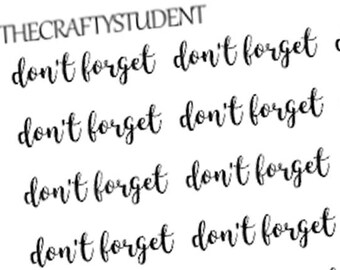 THECRAFTYSTUDENT
don't forget don't forget
don't forget don't forget
don't forget don't forget
don't forget don't forget